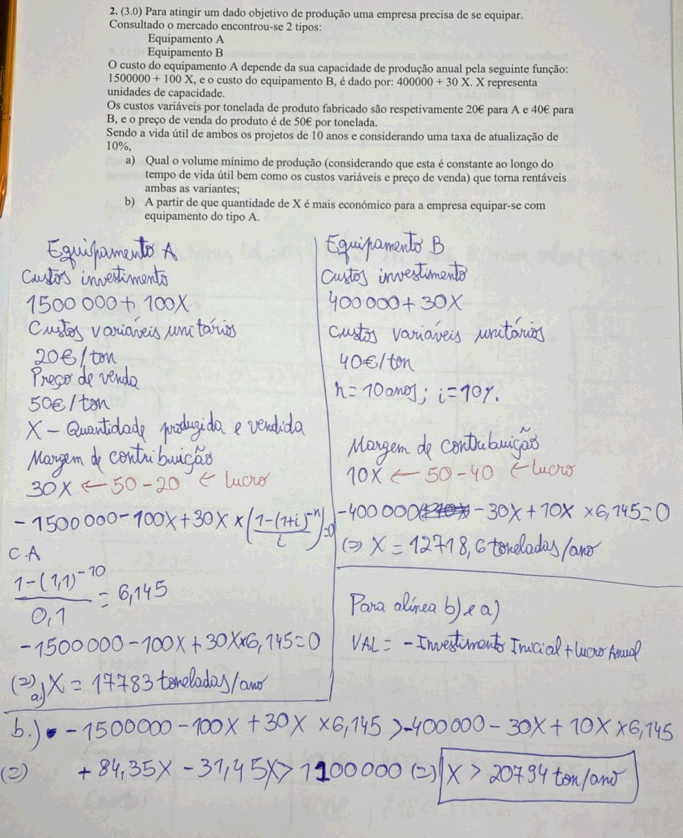 2. (3.0) Para atingir um dado objetivo de produção uma empresa precisa de se equipar.
Consultado o mercado encontrou-se 2 tipos:
Equipamento A
Equipamento B
O custo do equipamento A depende da sua capacidade de produção anual pela seguinte função:
1500000 + 100 X, e o custo do equipamento B, é dado por: 400000 + 30 X. X representa
unidades de capacidade.
Os custos variáveis por tonelada de produto fabricado são respetivamente 20€ para A e 40€ para
B, e o preço de venda do produto é de 50€ por tonelada.
Sendo a vida útil de ambos os projetos de 10 anos e considerando uma taxa de atualização de
10%,
a) Qual o volume mínimo de produção (considerando que esta é constante ao longo do
tempo de vida útil bem como os custos variáveis e preço de venda) que torna rentáveis
ambas as variantes;
b) A partir de que quantidade de X é mais económico para a empresa equipar-se com
equipamento do tipo A.
Equipamento A
Custos investimento
1500 000 + 100X
Custos variáveis unitários
20€/ton
Preço de venda
50€/ton
X - Quantidade produzida e vendida
Margem de contribuição
30X ← 50-20 ← lucro
-1500 000 - 100X + 30X × (1-(1+i)^-n / i) = 0
C.A
1-(1,1)^-10 / 0,1 = 6,145
-1500000 - 100X + 30X×6,145=0
(=) a) X = 17783 toneladas/ano
Equipamento B
Custos investimento
400 000 + 30X
Custos variáveis unitários
40€/ton
n= 10 anos; i=10%.
Margem de contribuição
10X ← 50-40 ← lucro
-400 000 - 30X + 10X × 6,145=0
(=) X = 12718,6 toneladas/ano
Para alínea b) e a)
VAL = - Investimento Inicial + Lucro Anual
b.) -1500000 - 100X + 30X × 6,145 > -400 000 - 30X + 10X × 6,145
(=) + 84,35X - 31,45X > 1100000 (=) X > 20794 ton/ano